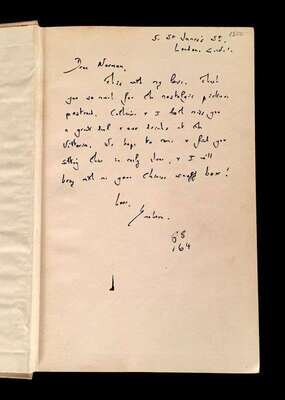 5, St James's St,
London, S.W.1.
Dear Norman,
This with my love. Thank
you so much for the nostalgic picture
postcard. Catherine & I both miss you
a great deal & our drinks at the
We hope to come & find you
sitting there in early & I will
bring with me your Chinese snuff box!
Love,
68
164